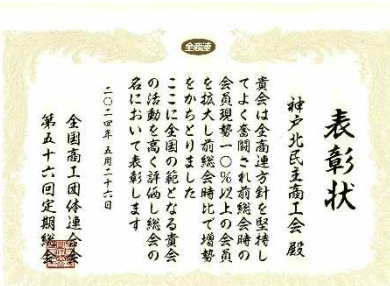 全商連
表彰状
神戸北民主商工会 殿
貴会は全商連方針を堅持し
てよく奮闘され前総会時の
会員現勢一〇%以上の会員
を拡大し前総会時比で増勢
をかちとりました
ここに全国の範となる貴会
の活動を高く評価し総会の
名において表彰します
二〇二四年 五月二十六日
全国商工団体連合会
第五十六回定期総会